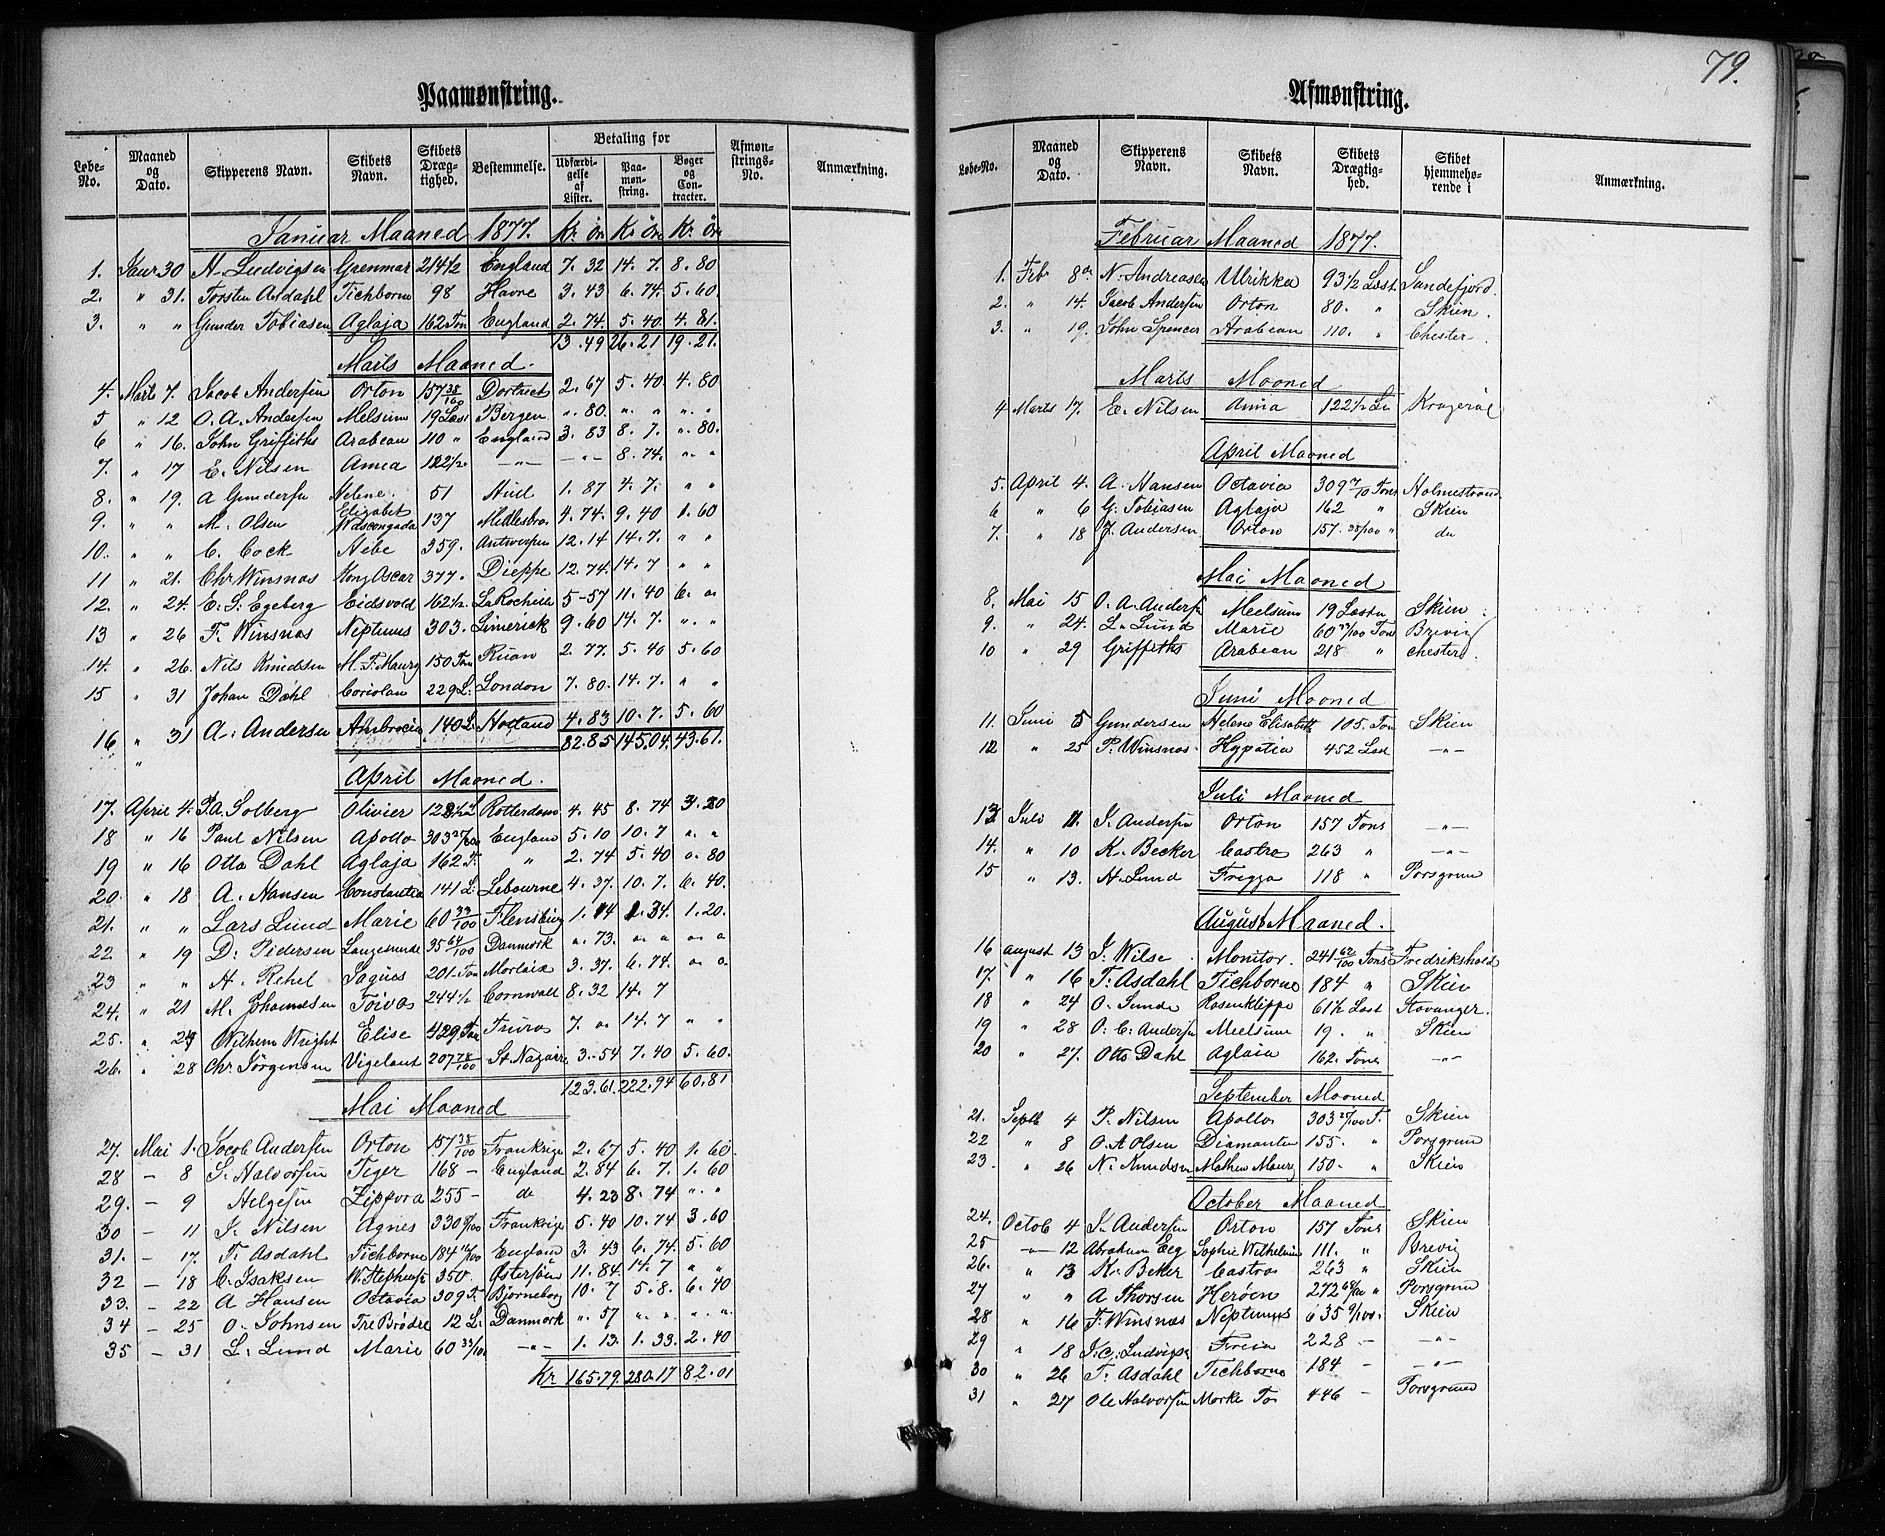 79.
Paamønstring.
Løbe-No. Maaned og Dato. Skipperens Navn. Skibets Navn. Skibets Dræg-tighed. Bestemmelse. Betaling for Udfærdi-gelse af Lister. Paa-møn-string. Bøger og Con-tracter. Afmøn-strings-No. Anmærkning.
Januar Maaned 1877. Kr. Ør Kr. Ør Kr. Ør
1. Janr 30 H. Ludvigsen Grenmar 214 1/2 England 7. 32 14. 7. 8. 80
2. " 31. Torsten Asdahl Tichborne 98 Havre 3. 43 6. 74. 5. 60.
3. " " Gunder Tobiasen Aglaja 162 Ton England 2. 74. 5. 40. 4. 81.
13. 49 26. 21 19. 21.
Marts Maaned.
4. Marts 7. Jacob Andersen Orton 157 38/100 Dortrect 2. 67 5. 40. 4. 80
5 " 12 O. A. Andersen Melsum 19 Læst Bergen ". 80. ". " ". "
6 " 16. John Griffiths Arabean 110 " England 3. 83 8. 7. ". 80.
7. " 17 E. Nilsen Anna 122 1/2 -"- -"- 8. 74. ". "
8. " 19. A Gundersen Helene Elisabet 51 Hull 1. 87 4. 7. " "
9. " " M. Olsen Wascongada 137 Midlesbro 4. 74. 9. 40 1. 60
10. " " C. Cock Hebe 359. Antwerpen 12. 14 14. 7. " "
11 " 21. Chr Winsnæs Kong Oscar 377. Dieppe 12. 74. 14. 7 " "
12. " 24. E. S. Egeberg Eidsvold 162 1/2. La Rochelle 5-57 11. 40 6. "
13 " 26 F. Winsnæs Neptunus 303. Limerick 9. 60 14. 7. ". ".
14. " 26. Nils Knudsen M. F. Maury 150 Ton Ruan 2. 77. 5. 40 5. 60
15 " 31 Johan Dahl Coriolan 229 L. London 7. 80. 14. 7. " "
16 " 31 A. Andersen Ambrocia 140 L. Holland 4. 83 10. 7. 5. 60
" 82. 85 145. 04. 43. 61.
April Maaned.
17. April 4. P. A. Solberg Olivier 128 1/2 L Rotterdam 4. 45 8. 74 3. 20
18 " 16 Paul Nilsen Apollo 303 27/100 England 5. 10 10. 7 ". "
19 " 16 Otto Dahl Aglaja 162 T. " 2. 74 5. 40 ". 80
20. " 18 A. Hansen Constantia 141 L. Lebourne 4. 37. 10. 7. 6. 40.
21. " " Lars Lund Marie 60 33/100 Flensburg 1. 14 1. 34. 1. 20.
22 " 19 D. Pedersen Langesund 35 64/100 Danmark ". 73. " " " "
23 " " H. Rehel Sagues 201. Ton Morlaix 3. 37. 6. 74. " "
24. " 21 M. Thomdsen Toivas 244 1/2 Cornwall 8. 32 14. 7
25. " 27 Wilhem Wright Elise 429 Ton Truro 7. " 14. 7 " "
26. " 28 Chr Jørgensen Vigelant 207 78/100 St. Nazaire 3. 54 7. 40 5. 60.
123. 61. 222. 94 60. 81
Mai Maaned
27. Mai 1. Jacob Andersen Orton 157 38/100 Frankrige 2. 67 5. 40 1. 60.
28 - 8 S. Halvorsen Tiger 168 - England 2. 84 6. 7. 1. 60
29. - 9 Helgesen Zippora 255 - do 4. 23 8. 74 ". "
30 - 11 J. Nilsen Agnes 330 Frankrige 5. 40 10. 74 3. 60
31. - 17. T. Asdahl Tichborne 184 16/100 England 3. 43 6. 74. 5. 60
32 - 18 C. Isaksen W. Stephens 350. Østersøen 11. 84. 14. 7 " "
33. - 22 A Hansen Octavia 309 T. Bjørneborg 10. 7 5. 8. 6. 40
34 - 25 O. Johnsen Tre Brødre 12 L. Danmark ". 57 ". " ". ".
35 - 31 L. Lund Marie 60 33/100 -"- 1. 13. 1. 33. 2. 40
Kr. 165. 79. 280. 17 82. 01
Afmønstring.
Løbe-No. Maaned og Dato. Skipperens Navn. Skibets Navn. Skibets Drægtig-hed. Skibet hjemmehø-rende i Anmærkning.
Februar Maaned 1877.
1. Feb 8 N. Andreasen Ulrikka 93 1/2 Læst. Sandefjord.
2. " 14. Jacob Andersen Orton 80. " Skien.
3. " 19. John Spencer Arabean 110. " Chester.
Marts Maaned
4 Marts 17. E. Nilsen Anna 122 1/2 Læ Kragerøe
April Maaned
5. April 4. A. Hansen Octavia 309 7/10 Tons Holmestrand
6 " 6 G. Tobiasen Aglaja 162 " Skien
7. " 18 J. Andersen Orton 157. 35/100 " do
Mai Maaned
8. Mai 15 O. A. Andersen Meelsum 19 Læster Skien.
9. " 24. L. Lund Marie 60 33/100 Tons Brevig
10 " 29 Griffiths Arabean 218 " Chester.
Juni Maaned
11. Juni 5 Gundersen Helene Elisabeth 105. Ton Skien
12 " 25 P. Winsnæs. Hypatia 452 Læst -"-
Juli Maaned
13 Juli 11. J. Andersen Orton 157 Tons -"-
14. " 10 K. Becker Castro 263 " -"-
15 " 13. H. Lund Frigga 118 " Porsgrund
August Maaned.
16 august 13 J. Wilse. Monitor. 241 62/100 Tons Fredrikshald
17. " 16 T. Asdahl Tichborne 184 " Skien
18 " 24 O. Lunde Rosenklippe 61 1/2 Læst Stavanger.
19 " 28 O. C. Andersen Meelsum 19. " Skien
20 " 27. Otto Dahl Aglaia 162. Tons -"-
September Maaned
21. Septb 4 P. Nilsen Apollo 303 27/100 T. Skien
22 " 8 O. A Olsen Diamanten 155. " Porsgrund
23. " 26 N. Knudsen Mathew Maury 150. " Skien
October Maaned
24. Octob 4 J. Andersen Orton 157 Tons Skien
25 -"- 12 Abraham Eeg Sophie Wilhelmine 111. " Brevig
26. " 13 K. Beker Castro 263 " Skien
27 " " A Thorsen Herøen 272 68/100 " Porsgrund
28 " 16 F. Winsnæs Neptunus 635 Skien
29 " 18 J. C. Ludvigsen Freia 228 - -"-
30 " 26 T. Asdahl Tichborne 184 - -"-
31 " 27 Ole Halvorsen Marke To 446 - Porsgrund